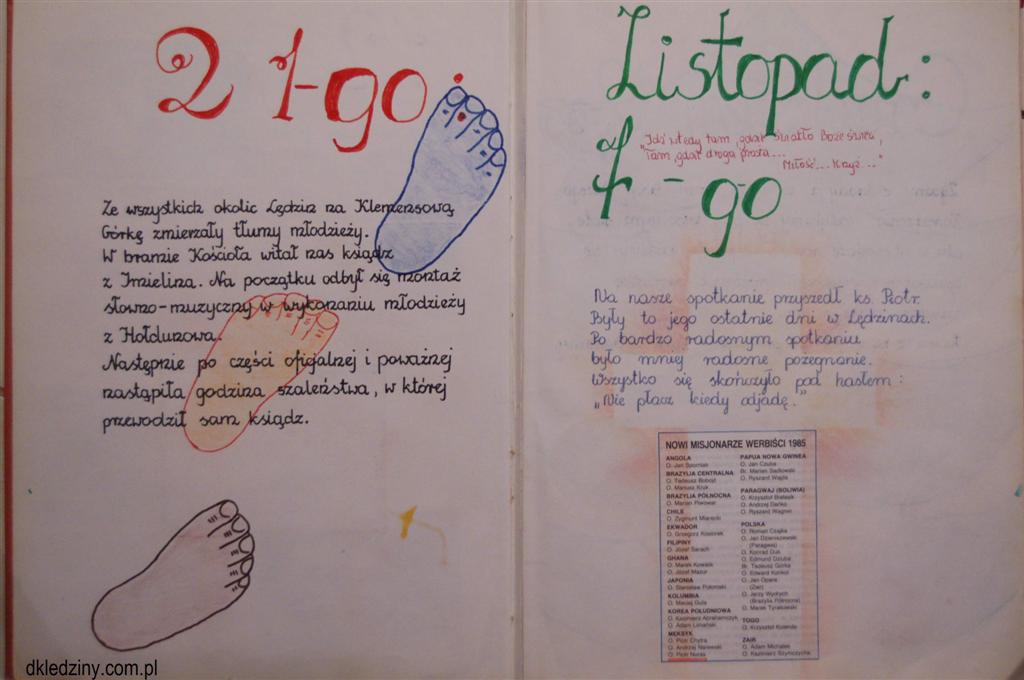 21-go.
Ze wszystkich okolic Lędzin na Klemensową
Górkę zmierzały tłumy młodzieży.
W bramie Kościoła witał nas ksiądz
z Imielina. Na początku odbył się montaż
słowno-muzyczny w wykonaniu młodzieży
z Hołdunowa.
Następnie po części oficjalnej i poważnej
nastąpiła godzina szaleństwa, w której
przewodził sam ksiądz.
Listopad:
"Idź wtedy tam, gdzie światło Boże świeci,
"Tam, gdzie droga prosta...
Miłość... Krzyż..."
4-go
Na nasze spotkanie przyszedł ks. Piotr.
Były to jego ostatnie dni w Lędzinach.
Po bardzo radosnym spotkaniu
było mniej radosne pożegnanie.
Wszystko się skończyło pod hasłem:
„Nie płacz kiedy odjadę."
NOWI MISJONARZE WERBIŚCI 1985
ANGOLA
O. Jan
BRAZYLIA CENTRALNA
O. Tadeusz
O. Mariusz Kruk
BRAZYLIA PÓŁNOCNA
O. Marian Piwowar
CHILE
O. Zygmunt
EKWADOR
O. Grzegorz
FILIPINY
O. Józef
GHANA
O. Marek Kowalik
O. Józef Mazur
JAPONIA
O. Stanisław
KOLUMBIA
O. Maciej Gula
KOREA POŁUDNIOWA
O. Kazimierz Abrahamczyk
O. Adam
MEKSYK
O. Piotr Chytra
O. Andrzej
O. Piotr Nuras
PAPUA NOWA GWINEA
O. Jan Czuba
Br. Marian Sadkowski
O. Ryszard Wajda
PARAGWAJ (BOLIWIA)
O. Krzysztof Białasik
O. Andrzej Dańko
O. Ryszard Wagner
POLSKA
O. Roman Czajka
O. Jan
(Paragwaj)
O. Konrad Duk
O. Edmund Dziuba
Br. Tadeusz Górka
O. Edward Konkol
O. Jan Opara
(Zair)
O. Jerzy
(Brazylia Północna)
O. Marek Tyrakowski
TOGO
O. Krzysztof
ZAIR
O. Adam Michałek
O. Kazimierz Szymczycha
dkledziny.com.pl